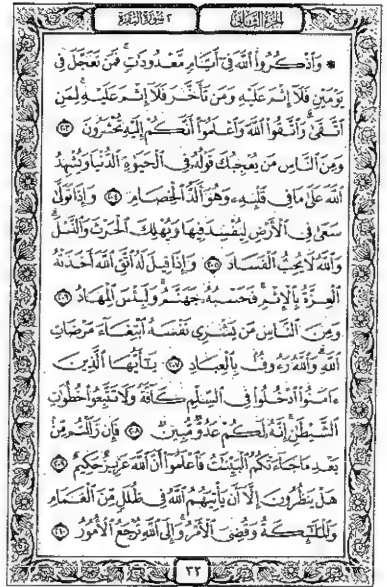 الجزء الثاني
٢ سورة البقرة
۞ وَاذْكُرُوا اللَّهَ فِي أَيَّامٍ مَعْدُودَاتٍ فَمَنْ تَعَجَّلَ فِي
يَوْمَيْنِ فَلَا إِثْمَ عَلَيْهِ وَمَنْ تَأَخَّرَ فَلَا إِثْمَ عَلَيْهِ لِمَنِ
اتَّقَىٰ وَاتَّقُوا اللَّهَ وَاعْلَمُوا أَنَّكُمْ إِلَيْهِ تُحْشَرُونَ ٢٠٣
وَمِنَ النَّاسِ مَنْ يُعْجِبُكَ قَوْلُهُ فِي الْحَيَوٰةِ الدُّنْيَا وَيُشْهِدُ
اللَّهَ عَلَىٰ مَا فِي قَلْبِهِ وَهُوَ أَلَدُّ الْخِصَامِ ٢٠٤ وَإِذَا تَوَلَّىٰ
سَعَىٰ فِي الْأَرْضِ لِيُفْسِدَ فِيهَا وَيُهْلِكَ الْحَرْثَ وَالنَّسْلَ
وَاللَّهُ لَا يُحِبُّ الْفَسَادَ ٢٠٥ وَإِذَا قِيلَ لَهُ اتَّقِ اللَّهَ أَخَذَتْهُ
الْعِزَّةُ بِالْإِثْمِ فَحَسْبُهُ جَهَنَّمُ وَلَبِئْسَ الْمِهَادُ ٢٠٦
وَمِنَ النَّاسِ مَنْ يَشْرِي نَفْسَهُ ابْتِغَاءَ مَرْضَاتِ
اللَّهِ وَاللَّهُ رَءُوفٌ بِالْعِبَادِ ٢٠٧ يَٰأَيُّهَا الَّذِينَ
ءَامَنُوا ادْخُلُوا فِي السِّلْمِ كَافَّةً وَلَا تَتَّبِعُوا خُطُوَٰتِ
الشَّيْطَٰنِ إِنَّهُ لَكُمْ عَدُوٌّ مُبِينٌ ٢٠٨ فَإِنْ زَلَلْتُمْ مِنْ
بَعْدِ مَا جَاءَتْكُمُ الْبَيِّنَٰتُ فَاعْلَمُوا أَنَّ اللَّهَ عَزِيزٌ حَكِيمٌ ٢٠٩
هَلْ يَنْظُرُونَ إِلَّا أَنْ يَأْتِيَهُمُ اللَّهُ فِي ظُلَلٍ مِنَ الْغَمَامِ
وَالْمَلَٰئِكَةُ وَقُضِيَ الْأَمْرُ وَإِلَى اللَّهِ تُرْجَعُ الْأُمُورُ ٢١٠
٣٢